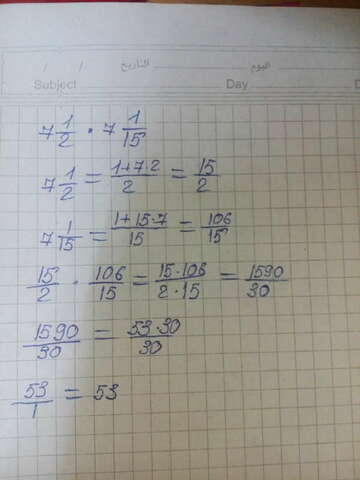 / / التاريخ اليوم
Subject Day D
7 1/2 • 7 1/15
7 1/2 = 1+7·2/2 = 15/2
7 1/15 = 1+15·7/15 = 106/15
15/2 · 106/15 = 15·106/2·15 = 1590/30
1590/30 = 53·30/30
53/1 = 53